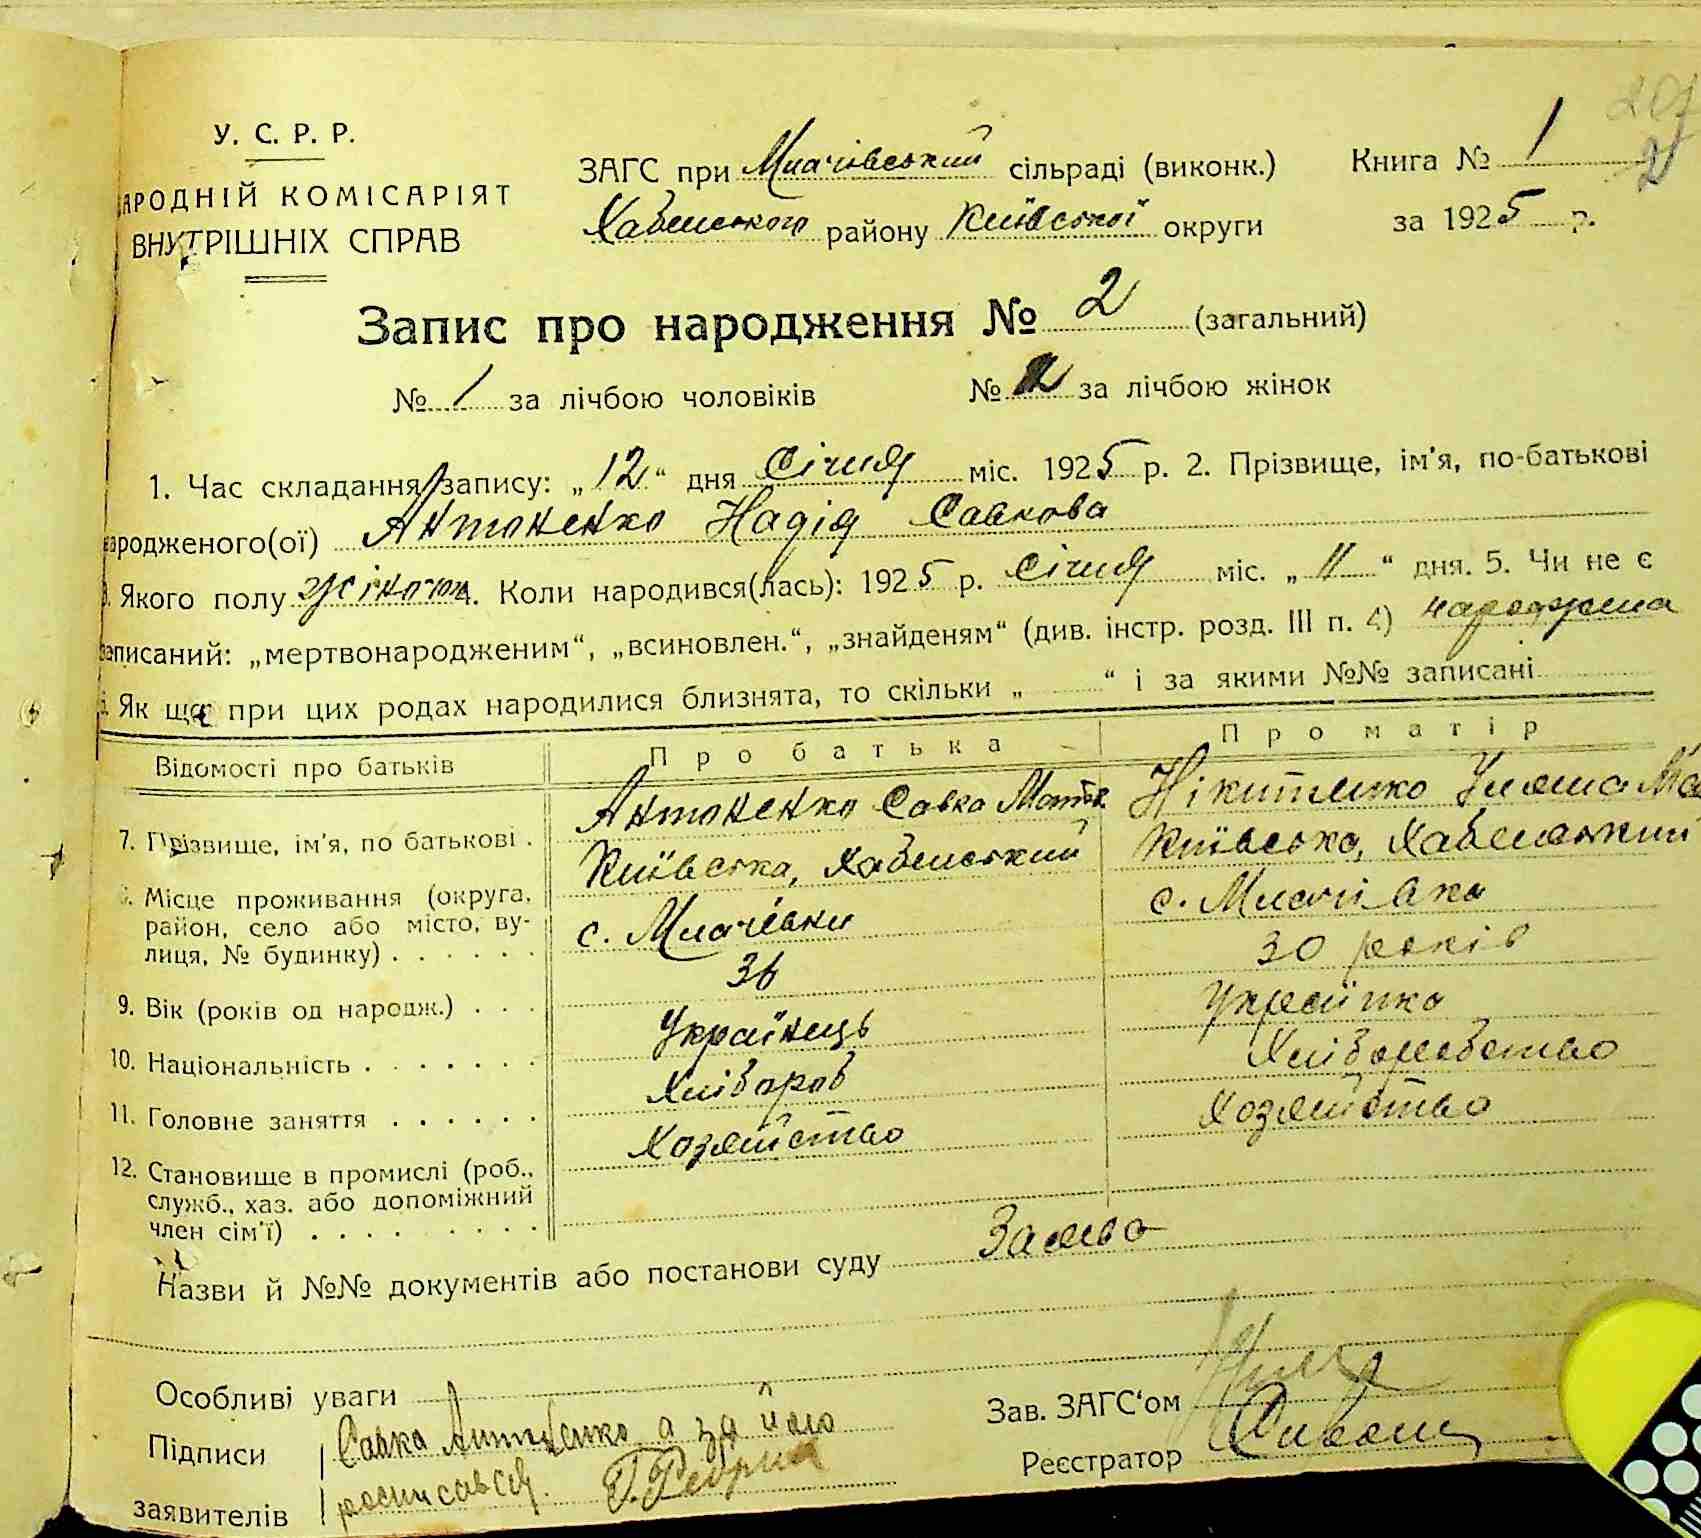 У. С. Р. Р.
АРОДНІЙ КОМІСАРІЯТ
ВНУТРІШНІХ СПРАВ
ЗАГС при Млачівський сільраді (виконк.)
Хабенського району Київської округи
Книга № 1
2
за 1925 р.
Запис про народження № 2 (загальний)
№ 1 за лічбою чоловіків № 2 за лічбою жінок
1. Час складання запису: „12“ дня Січня міс. 1925 р. 2. Прізвище, ім'я, по-батькові
народженого(ої) Антоненко Надія Савкова
3. Якого полу жіночого 4. Коли народився(лась): 1925 р. Січня міс. „11“ дня. 5. Чи не є
записаний: „мертвонародженим“, „всиновлен.“, „знайденям“ (див. інстр. розд. III п. 4) народжена
Як що при цих родах народилися близнята, то скільки „ “ і за якими №№ записані
Відомості про батьків Про батька Про матір
7. Прізвище, ім'я, по батькові . Антоненко Савка Нікитенко Уляна
Місце проживання (округа, район, село або місто, вулиця, № будинку) . . . . . .
Київська, Хабенський Київська, Хабенський
с. Млачівки с. Млачівка
9. Вік (років од народж.) . . . 36 30 років
10. Національність . . . . . . . Українець Українка
11. Головне заняття . . . . . . Хлібороб Хліборобство
12. Становище в промислі (роб., служб., хаз. або допоміжний член сім'ї) . . . . . . . .
Хозяйство Хозяйство
Назви й №№ документів або постанови суду Заява
Особливі уваги
Зав. ЗАГС‘ом
Підписи Савка Антоненко а за його
заявителів росписався Г.
Реєстратор